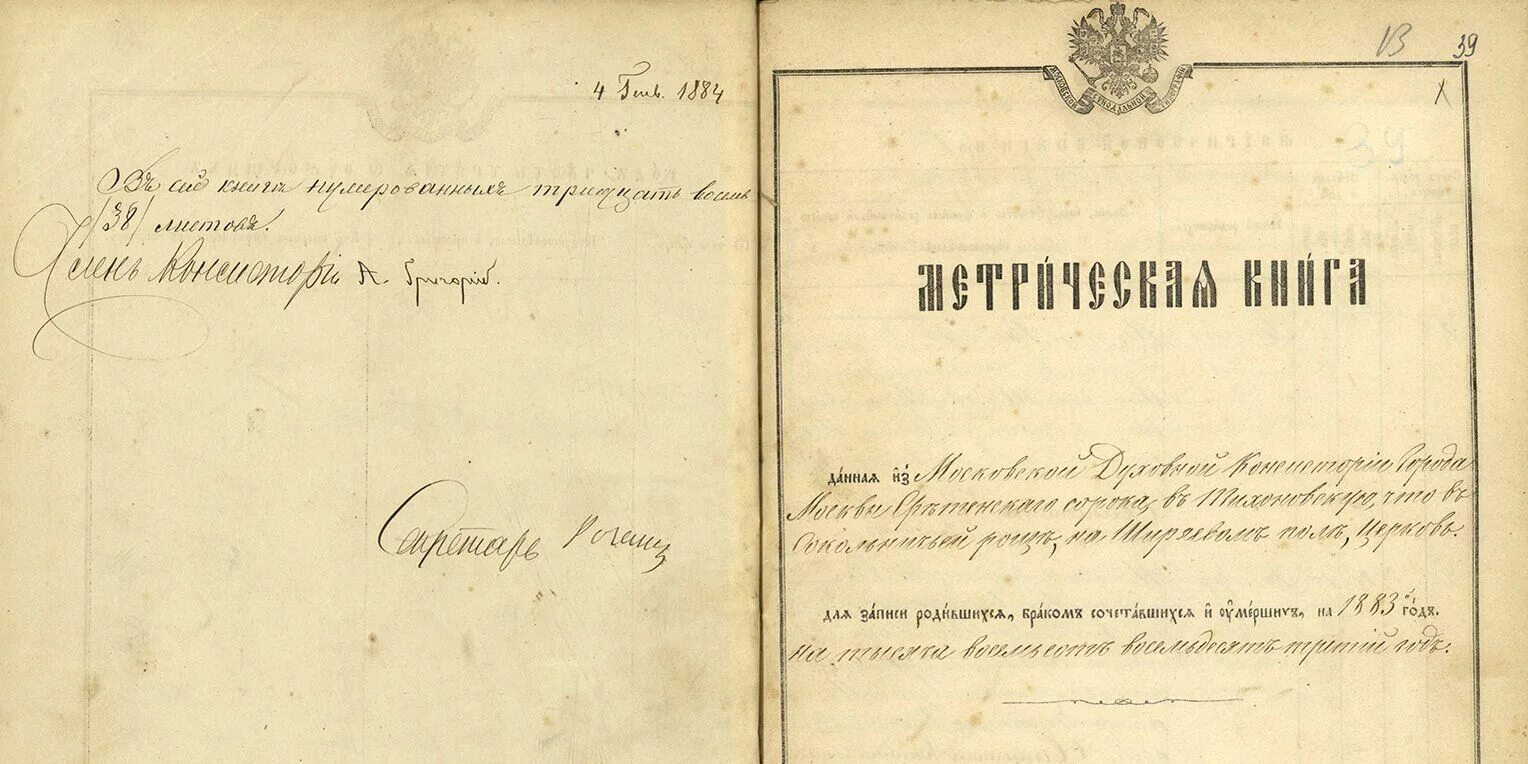 4 Генв. 1884
Въ сей книгѣ нумерованныхъ тридцать восемь
/38/ листовъ.
Членъ Консисторіи А. Григорій.
Секретарь
13
39
X
МОСКОВСКОЙ СѴНОДАЛЬНОЙ ТИПОГРАФІИ
МЕТРИ́ЧЕСКАѦ КНИ́ГА
да́нная и҆з̾ Московской Духовной Консисторіи Города
Москвы Срѣтенскаго сорока, въ Тихоновскую, что въ
Сокольничьей рощѣ, на Ширяевомъ полѣ, Церковь.
для за́писи роди́вшихся, бра́комъ сочета́вшихся и҆ ᲂу҆ме́ршихъ, на 1883й го́дъ.
на тысяча восемьсотъ восемьдесятъ третій годъ.